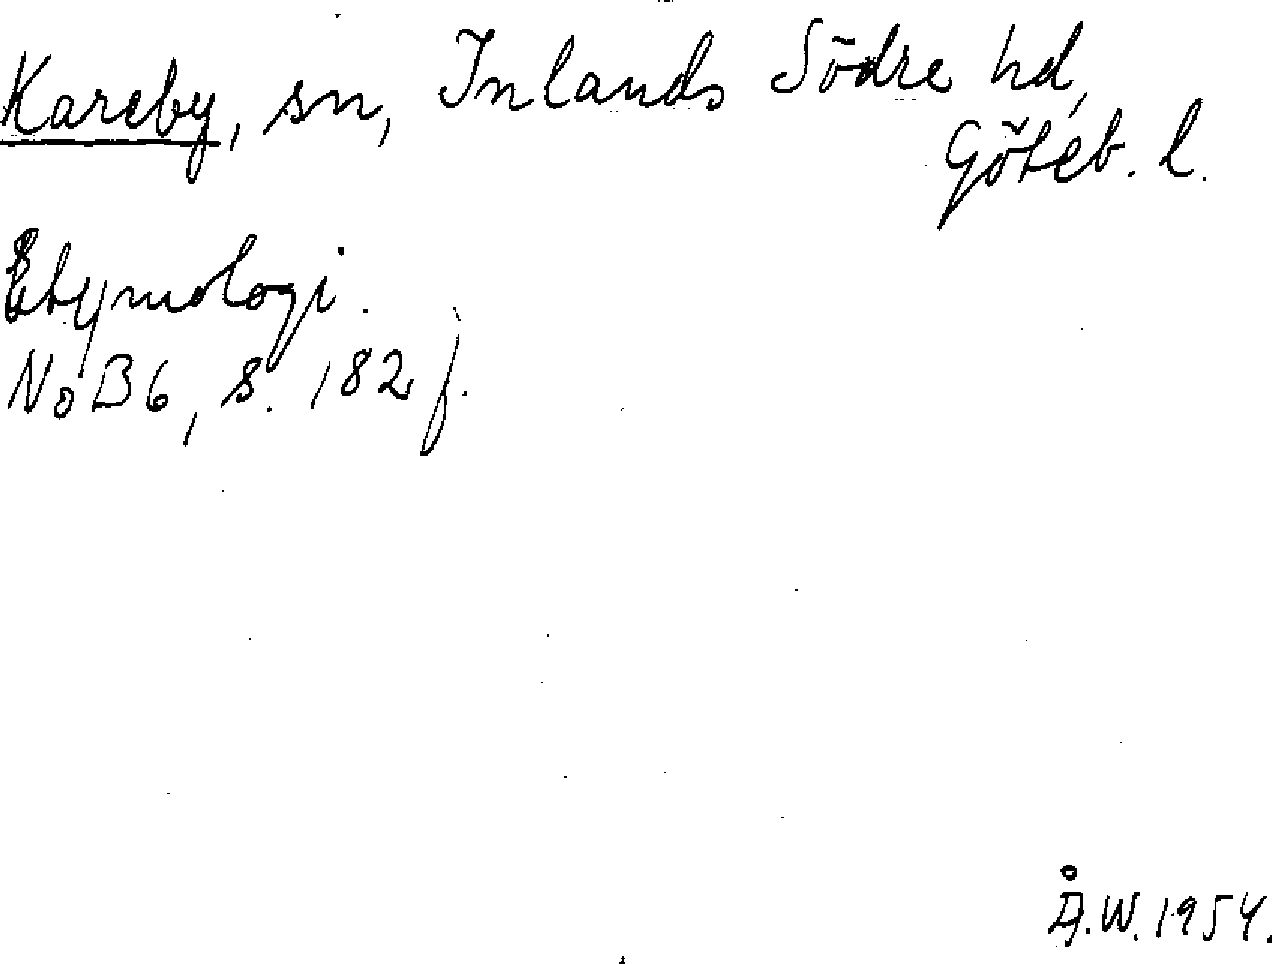 Kareby, sn, Inlands Södre hd,
Göteb. l.
Etymologi.
NoB 6, s. 182 f.
Å.W. 1954.